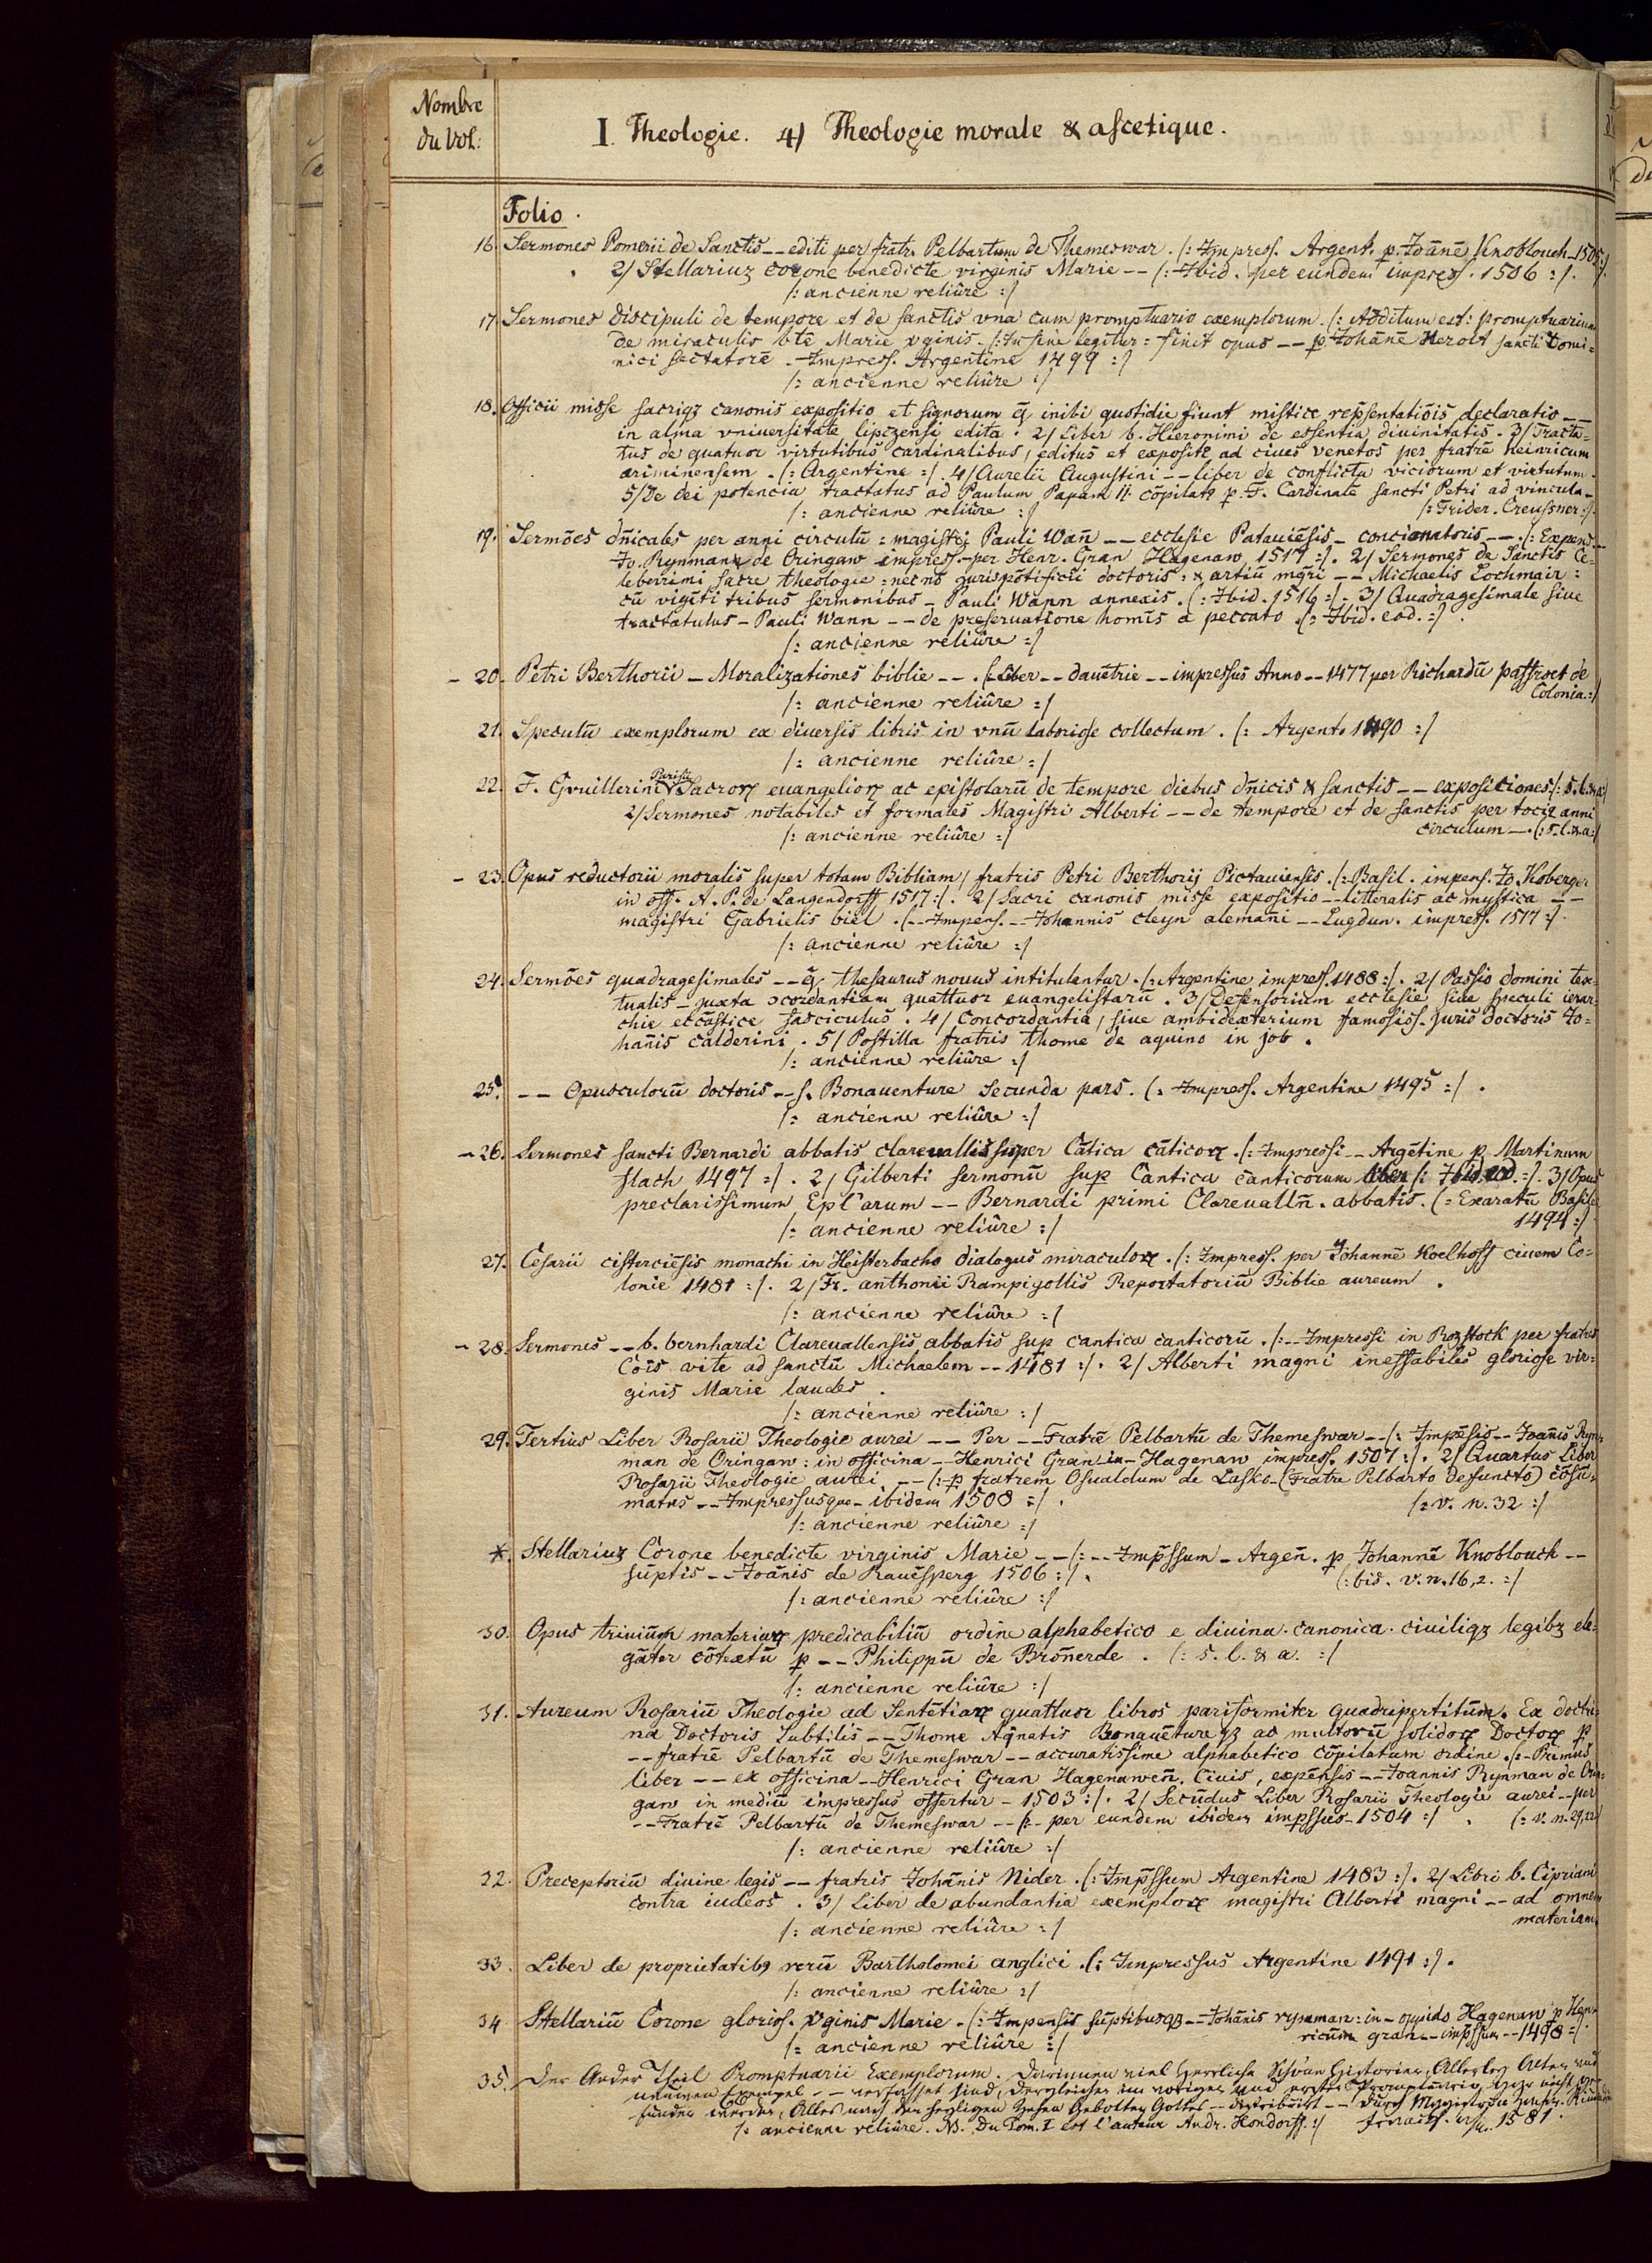 Nombre
du Vol:
I. Theologie. 4) Theologie morale & ascetique.
Folio.
16. Sermones Pomerii de Sanctis -- editi per fratr. Pelbartum de Themeswar. /: Impress. Argent. p. Joānē Knoblouch 1505 :/
2/ Stellariuz corone benedicte virginis Marie -- /: Ibid. per eundem impress. 1506 :/.
/: ancienne reliûre :/
17. Sermones discipuli de tempore et de sanctis vna cum promptuario exemplorum. /: Additum est: promptuarium
de miraculis bte Marie vginis. /: In fine legitur: finit opus -- p Johāne Herolt sancti Domi=
nici sectatorē. Impress. Argentine 1499 :/
/: ancienne reliûre :/
18. Officii misse sacriqz canonis expositio et signorum q̄ inibi quotidie fiunt mistice repsentatiōis declaratio --
in alma vniuersitate lipczensi edita. 2/ Liber b. Hieronimi de essentia diuinitatis. 3/ Tracta=
tus de quatuor virtutibus cardinalibus, editus et exposite ad ciues venetos per fratrē heinricum
ariminensem. /: Argentine :/. 4/ Aurelii Augustini -- liber de conflictu viciorum et virtutum.
5/ De dei potencia tractatus ad Paulum Papam II. cōpilat9 p. F. Cardinalē sancti Petri ad vincula.
/: ancienne reliûre :/ /: Frider. Creussner :/.
19. Sermōes dn̄icales per anni circulū: magistri Pauli Wan̄ -- ecclesie Patauiēsis - concionatoris --. /: Expens. --
Jo. Rynmann de Oringaw impress. per Henr. Gran Hagenaw 1517 :/. 2/ Sermones de Sanctis Ce=
leberrimi sacre theologie: necnō jurispōtificii doctoris: & artiū mgr̄i -- Michaelis Lochmair:
cū vigīti tribus sermonibus - Pauli Wann annexis. /: Ibid. 1516 :/. 3/ Quadragesimale siue
tractatulus - Pauli Wann -- de preseruatione homīs a peccato. /: Ibid. eod. :/.
/: ancienne reliûre :/
- 20. Petri Berthorii - Moralizationes biblie --. /: Liber -- dauētrie -- impressus Anno -- 1477 per Richardū paffroet de
Colonia. :/
/: ancienne reliûre :/
21. Speculū exemplorum ex diuersis libris in vnū laboriose collectum. /: Argent. 1490 :/
/: ancienne reliûre :/
22. F. Gvuillerini Parisiē Sacroꝝ euangelioꝝ ac epistolarū de tempore diebus dn̄icis & sanctis -- expositiones /: s. l. & a :/
2/ Sermones notabiles et formales Magistri Alberti -- de tempore et de sanctis per toci9 anni
circulum --. /: s. l. & a :/
/: ancienne reliûre :/
- 23. Opus reductorii moralis super totam Bibliam, fratris Petri Berthorij Pictauiensis. /: Basil. impens. Jo. Koberger
in off. A. P. de Langendorff, 1517 :/. 2/ Sacri canonis misse expositio -- litteralis ac mystica --
magistri Gabrielis biel. /: -- Impens. -- Johannis cleyn alemāni -- Lugdun. impress. 1517 :/.
/: ancienne reliûre :/
24. Sermōes quadragesimales -- q̄ thesaurus nouus intitulantur. /: Argentine impress. 1488 :/. 2/ Passio domini tex=
tualis - juxta ɔcordantiam quattuor euangelistarū. 3/ Defensorium ecclesie siue speculi ierar=
chie eccāstice fasciculus. 4/ Concordantia, siue ambidexterium famosiss. juris doctoris Jo=
hañis calderini. 5/ Postilla fratris thome de aquino in job.
/: ancienne reliûre :/
25. -- Opusculorū doctoris -- s. Bonauenture Secunda pars. /: Impress. Argentine 1495 :/.
/: ancienne reliûre :/
- 26. Sermones sancti Bernardi abbatis clareuallis super Cātica cāticoꝝ. /: Impressi -- Argētine p Martinum
flach 1497 :/. 2/ Gilberti sermonū sup Cantica canticorum liber /: Ibid. eod. :/. 3/ Opus
preclarissimum Epl'arum -- Bernardi primi Clareuallñ. abbatis. /: Exaratū Basilee
1494 :/
/: ancienne reliûre :/
27. Cesarii cisterciēsis monachi in Heisterbacho dialogus miraculoꝝ. /: Impress. per Johannē Koelhoff ciuem Co=
lonie 1481 :/. 2/ Fr. anthonii Rampigollis Reportatoriū Biblie aureum.
/: ancienne reliûre :/
- 28. Sermones -- b. bernhardi Clareuallensis abbatis sup cantica canticorū. /: -- Impressi in Rozstock per fratres
Cōis vite ad sanctū Michaelem -- 1481 :/. 2/ Alberti magni ineffabiles gloriose vir=
ginis Marie laudes.
/: ancienne reliûre :/
29. Tertius Liber Rosarii Theologie aurei -- Per -- Fratrē Pelbartū de Themeswar -- /: Impēsis -- Joañis Ryn=
man de Oringaw: in officina -- Henrici Gran in - Hagenaw impress. 1507 :/. 2/ Quartus Liber
Rosarii Theologie aurei -- /: p fratrem Osualdum de Lasko - (Fratre Pelbarto defuncto) cōsū=
matus -- Impressusque - ibidem 1508 :/. /: v. n. 32 :/
/: ancienne reliûre :/
*. Stellariuz Corone benedicte virginis Marie -- /: -- Imp̄ssum - Argeñ. p Johannē Knoblouch --
sūptis -- Joānis de Rauēsperg 1506 :/. /: bis. v. n. 16, 2. :/
/: ancienne reliûre :/
30. Opus triuiūm materiaꝝ predicabiliū ordine alphabetico e diuina. canonica. ciuiliqz legibz ele=
gāter cōtextū p -- Philippū de Bronnerde. /: s. l. & a. :/
/: ancienne reliûre :/
31. Aureum Rosariū Theologie ad Sentētiaꝝ quattuor libros pariformiter quadripertitūm. Ex doctri=
na Doctoris Subtilis -- Thome Aq̄natis Bonauēture qz ac multorū solidoꝝ Doctoꝝ p
-- fratrē Pelbartū de Themeswar -- accuratissime alphabetico cōpilatum ordine. /: - Primus
liber -- ex officina -- Henrici Gran Hagenaweñ. Ciuis, expēnsis -- Joannis Rynman de Orin=
gaw in mediū impressus offertur - 1503 :/. 2/ Secūdus Liber Rosarii Theologie aurei -- per
-- Fratrē Pelbartū de Themeswar -- /: - per eundem ibidem imp̄ssus - 1504 :/. /: v. n. 29, 22 :/
/: ancienne reliûre :/
32. Preceptoriū diuine legis -- fratris Johānis Nider. /: Imp̄ssum Argentine 1483 :/. 2/ Libri b. Cipriani
contra iudeos. 3/ Liber de abundantia exemploꝝ magistri Alberti magni -- ad omnem
materiam.
/: ancienne reliûre :/
33. Liber de proprietatib9 rerū Bartholomei anglici. /: Impressus Argentine 1491 :/.
/: ancienne reliûre :/
34. Stellariū Corone glorios. vginis Marie. /: Impensis sūptibusqz -- Johānis rynman: in - oppido Hagenaw p Hen=
ricūm gran -- imp̄ssum -- 1498 :/.
/: ancienne reliûre :/
35. Der Ander Theil Promptuarii Exemplorum. Darinnen viel herrliche Schöne Historien, Allerley Alten und
neuwen Exempel -- verfasset sind, dergleichen im vorigen und ersten Promptuario gar nicht ge=
funden werden, Alles nach den heyligen Zehen Gebotten Gottes -- distribuirt -- durch
/: ancienne reliûre. NB. Du Tom. I est l'auteur Andr. Hondorff. :/ 1581.